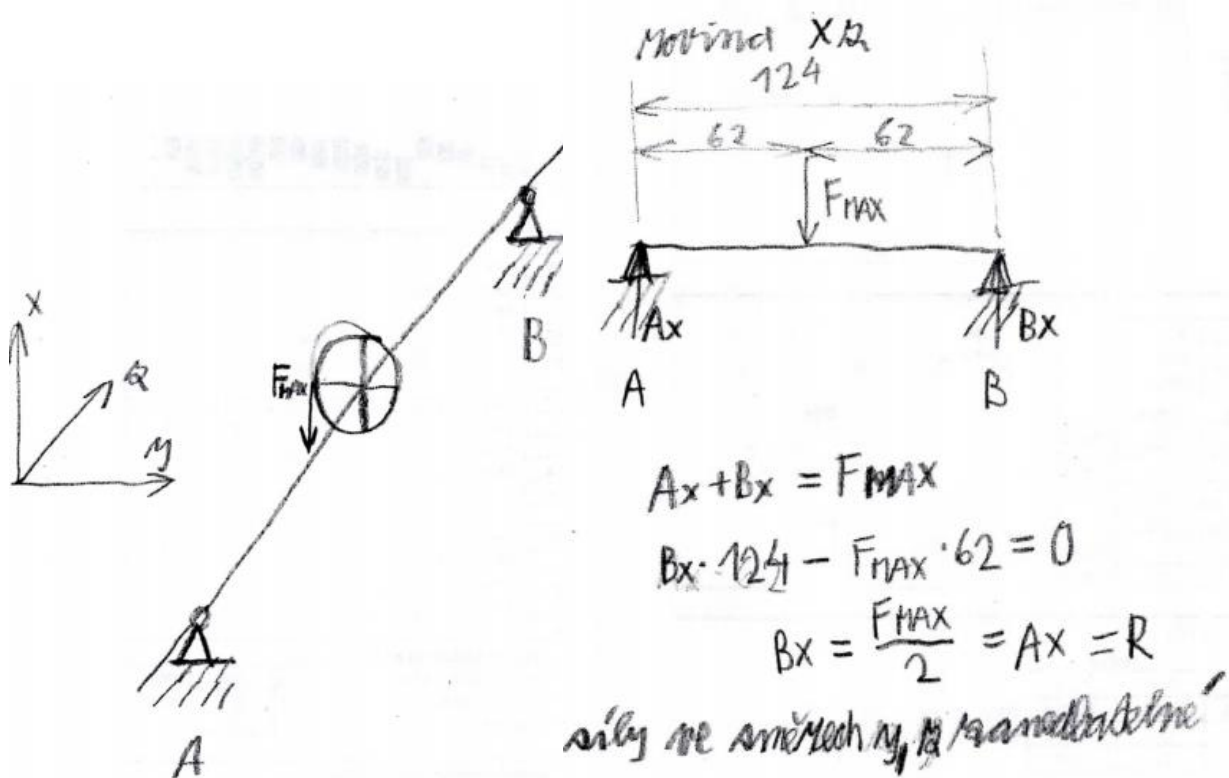 x
z
y
F_MAX
A
B
rovina xz
124
62 62
F_MAX
Ax Bx
A B
Ax + Bx = F_MAX
Bx · 124 - F_MAX · 62 = 0
Bx = F_MAX / 2 = Ax = R
síly ve směrech y, z zanedbatelné